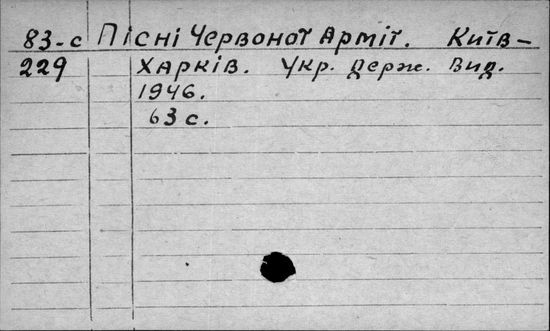 83-с Пісні Червоної Армії. Київ-
229 Харків. Укр. держ. вид.
1946.
63 с.